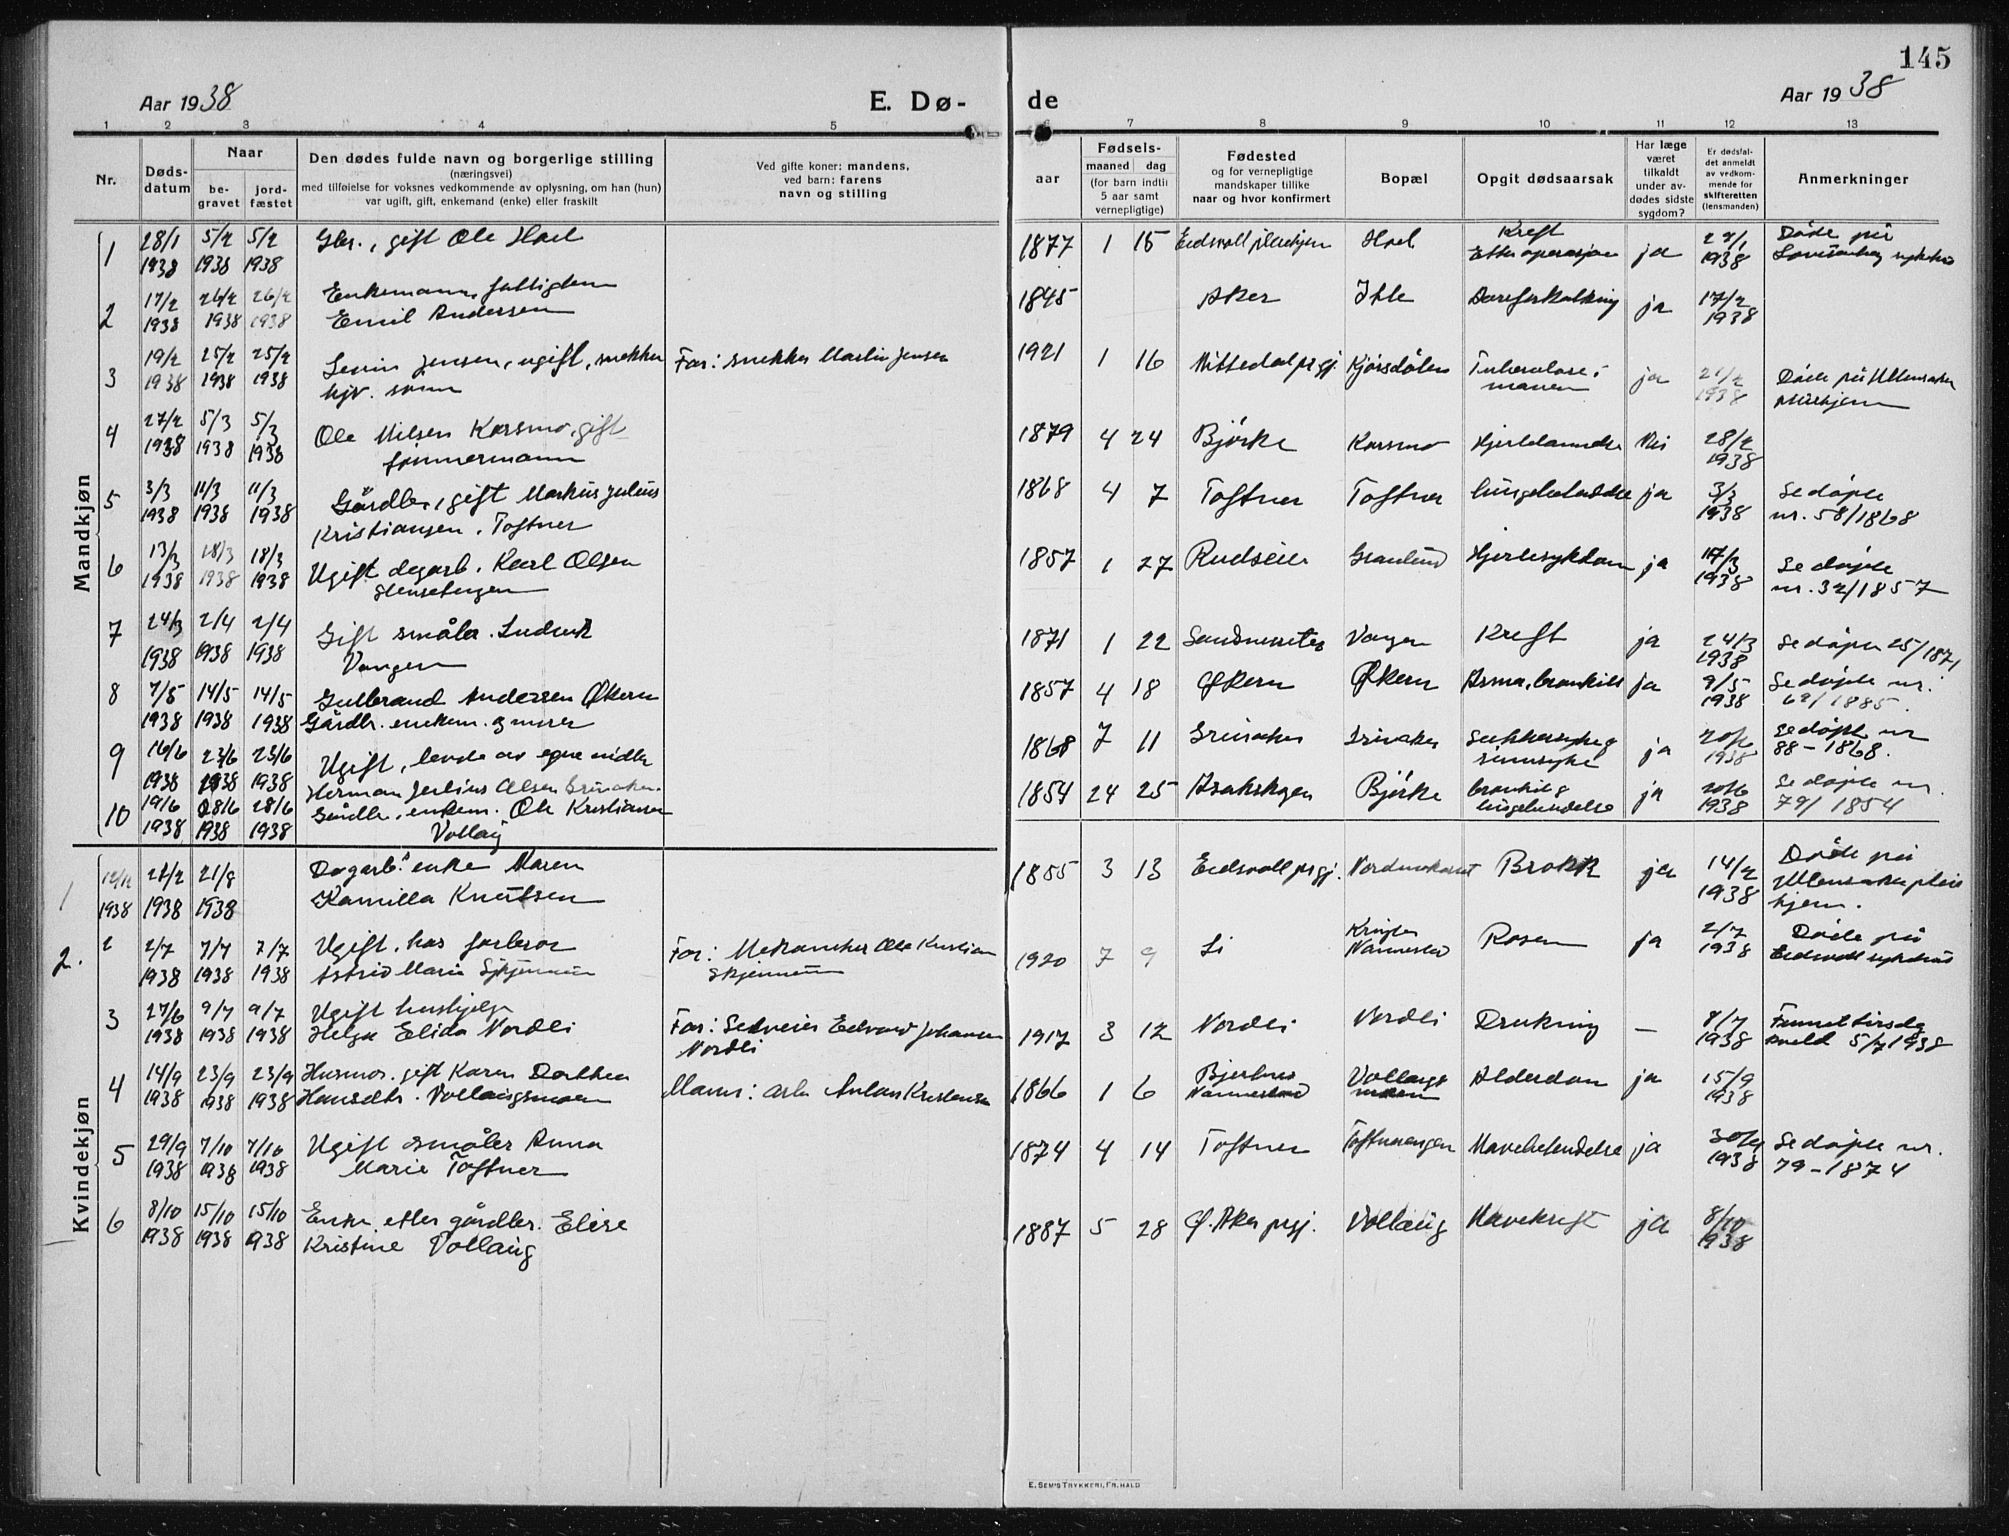 145
Aar 1938
E. Dø-
de
Aar 1938
1 2 3 4 5 6 7 8 9 10 11 12 13
Nr.
Døds-
datum
Naar
be-
gravet
jord-
fæstet
Den dødes fulde navn og borgerlige stilling
(næringsvei)
med tilføielse for voksnes vedkommende av oplysning, om han (hun)
var ugift, gift, enkemand (enke) eller fraskilt
Ved gifte koner: mandens,
ved barn: farens
navn og stilling
Fødsels-
aar
maaned dag
(for barn indtil
5 aar samt
vernepligtige)
Fødested
og for vernepligtige
mandskaper tillike
naar og hvor konfirmert
Bopæl
Opgit dødsaarsak
Har læge
været
tilkaldt
under av-
dødes sidste
sygdom?
Er dødsfal-
det anmeldt
av vedkom-
mende for
skifteretten
(lensmanden)
Anmerkninger
Mandkjøn
1 28/1 5/2 5/2 Gbr., gift Ole Hoel 1877 1 15 Hoel Kreft ja Døde på
1938 1938 1938 Etter operasjon 1938
2 17/2 26/2 26/2 Enkemann, fattiglem 1845 Aker Ihle Åreforkalkning ja 17/2
1938 1938 1938 Emil Andersen 1938
3 19/2 25/2 25/2 Jensen, ugift, snekker Far: snekker Martin Jensen 1921 1 16 Nittedal prgj. Tuberkulose i ja 21/2 Døde på Ullensaker
1938 1938 1938 sønn maven 1938 pleiehjem
4 27/2 5/3 5/3 Ole Nilsen Korsmo, gift 1879 4 24 Bjørke Korsmo Hjertelammelse Nei 28/2
1938 1938 1938 tømmermann 1938
5 3/3 11/3 11/3 Gårdbr., gift Markus Julius 1868 4 7 Toftner Toftner lungebetendelse ja 3/3 Se døpte
1938 1938 1938 Kristiansen, Toftner 1938 nr. 58/1868
6 13/3 18/3 18/3 Ugift dagarb. Karl Olsen 1857 1 27 Rudseie Granlund Hjertesykdom ja 17/3 Se døpte
1938 1938 1938 1938 nr. 32/1857
7 24/3 2/4 2/4 Gift småbr. Ludvik 1871 1 22 Vangen Kreft ja 24/3 Se døpte 25/1871
1938 1938 1938 Vangen 1938
8 7/5 14/5 14/5 Gulbrand Andersen Økern 1857 4 18 Økern Økern Asma, bronkitt ja 9/5 Se døpte nr.
1938 1938 1938 Gårdbr. enkem. 1938 69/1885.
9 16/6 23/6 23/6 Ugift, levde av egne midler 1868 7 11 Grinaker Grinaker sukkersyke og ja 20/6 se døpt nr
1938 1938 1938 Herman Julius Olsen Grinaker sinnsyke 1938 88-1868.
10 19/6 28/6 28/6 Gårdbr., enkem. Ole Kristiansen 1854 24 25 Bjørke bronkitt & ja 20/6 Se døpte nr.
1938 1938 1938 Vollaug lungebetendelse 1938 79/1854
Kvindekjøn
1 12/2 21/2 21/8 Dagarb. enke Maren 1855 3 13 Eidsvoll prgj. Brokk ja 14/2 Døde på
1938 1938 1938 Kamilla Knutsen 1938 Ullensaker pleie
hjem.
2. 2 2/7 7/7 7/7 Ugift, hos foreldre Far: Ole Kristian 1920 7 9 Li Rosen ja 2/7 Døde på
1938 1938 1938 Astrid Marie Skjennum Skjennum Nannestad 1938 Eidsvoll sykehus
3 27/6 9/7 9/7 Ugift hushjelp Far: Edvard Johansen 1917 3 12 Nordli Nordli Drukning — 8/7 Funnet tirsdag
1938 1938 1938 Helga Elida Nordli Nordli 1938 kveld 5/7 1938
4 14/9 23/9 23/9 Husmor, gift Karen Dorthea Mann: arb. Anton Kristensen 1866 1 6 Bjerknes Vollaugs Alderdom ja 15/9
1938 1938 1938 Hansdtr. Vollaugsmoen Nannestad moen 1938
5 29/9 7/10 7/10 Ugift småbr Anna 1874 4 14 Toftner Toftnerengen Mavebetendelse ja 30/9 Se døpte nr.
1938 1938 1938 Marie Toftner 1938 79-1874
6 8/10 15/10 15/10 Enke etter gårdbr. Elise 1887 5 28 Ø. Aker prgj. Vollaug Mavekreft ja 8/10
1938 1938 1938 Kristine Vollaug 1938
E. SEM'S TRYKKERI, FR.HALD